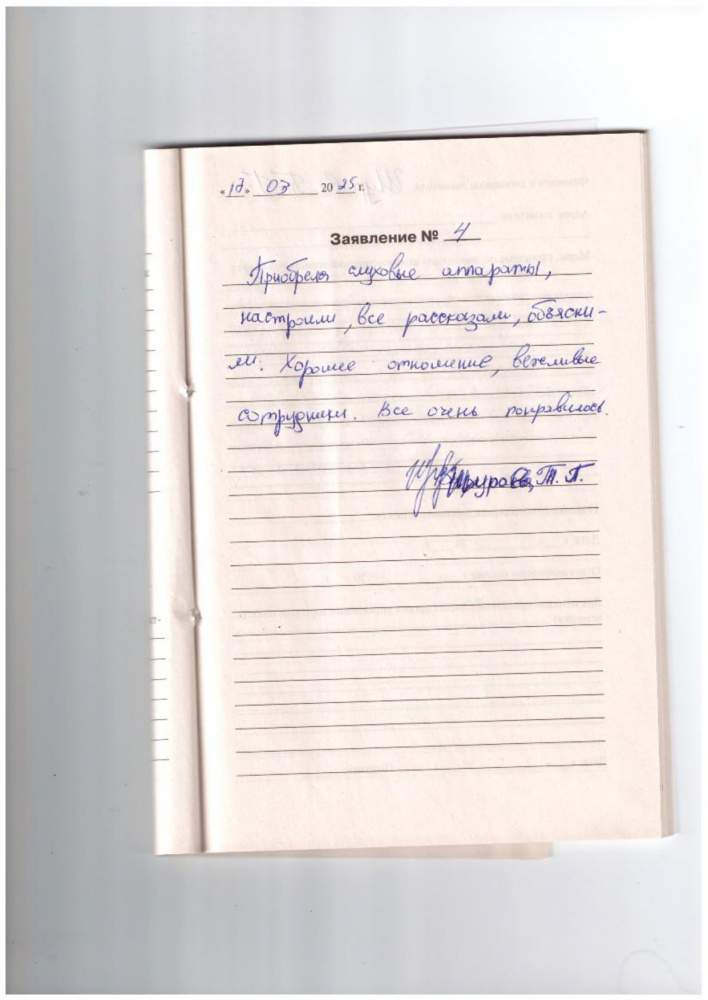 «17» 03 2025 г.
Заявление № 4
Приобрела слуховые аппараты,
настроили, все рассказали, объясни-
ли. Хорошее отношение, вежливые
сотрудники. Все очень понравилось.
Т. П.